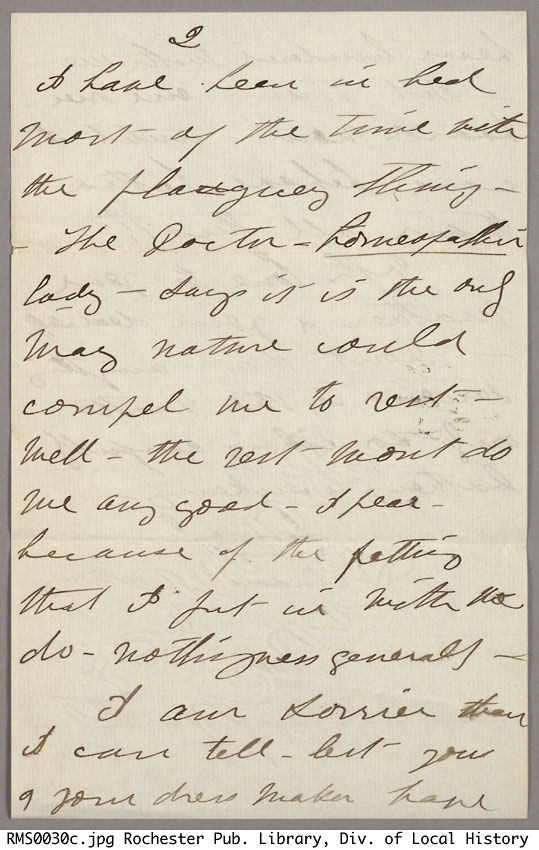 2
I have been in bed
most of the time with
the plaguey thing -
- The Doctor - homeopathic
lady - says it is the only
way nature could
compel me to rest -
Well - the rest wont do
me any good - I fear -
because of the fretting
that I put in with the
do-nothingness generally -
I am sorrier than
I can tell - but you
& your dress maker have
RMS0030c.jpg Rochester Pub. Library, Div. of Local History